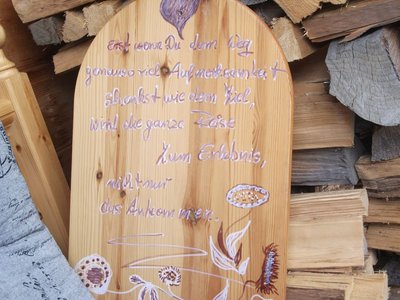 erst wenn Du dem Weg
genauso viel Aufmerksamkeit
schenkst wie dem Ziel,
wird die ganze Reise
zum Erlebnis,
nicht nur
das Ankommen.